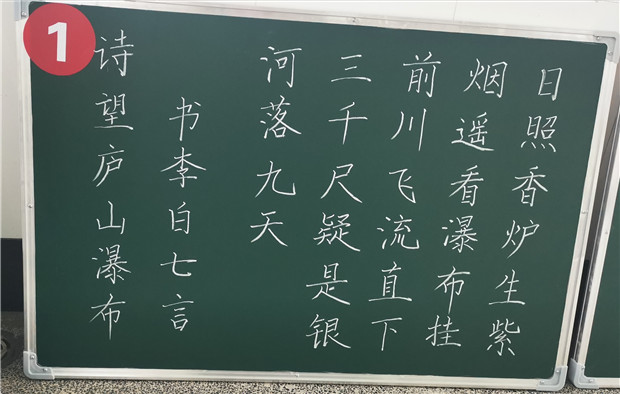 1
日照香炉生紫
烟遥看瀑布挂
前川飞流直下
三千尺疑是银
河落九天
书李白七言
诗望庐山瀑布